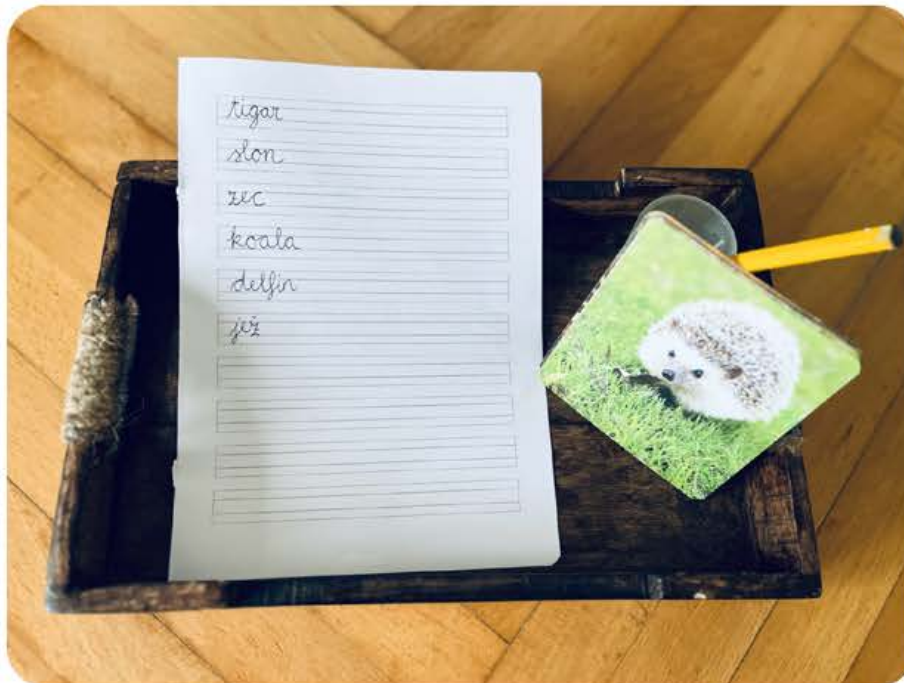 tigar
slon
zec
koala
delfin
jež